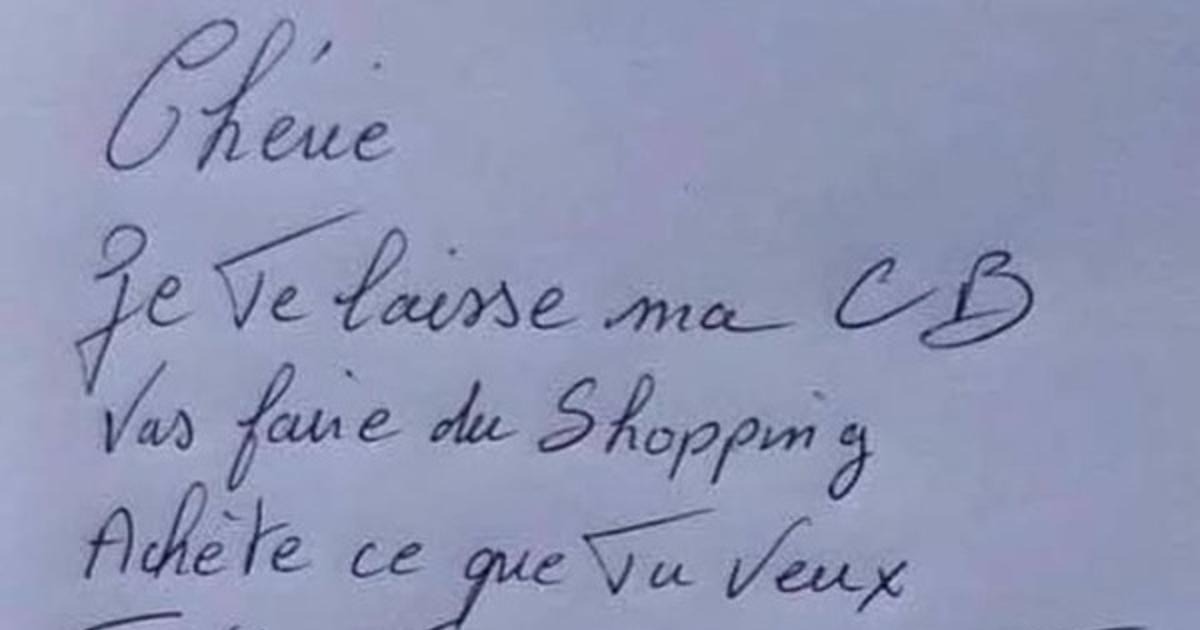 Chérie
Je Te laisse ma CB
Vas faire du Shopping
Achète ce que Tu Veux